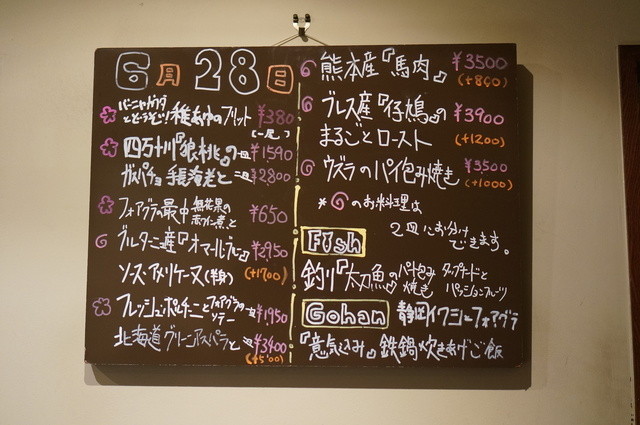 6月28日
バーニャカウダ
稚あゆのフリット ¥380
(一尾)
四万十川『狼桃』の ¥1590
ガスパチョ 手長海老と ¥2,800
フォアグラの最中 無花果の
赤ワイン煮と ¥650
ブルターニュ産『オマールブルー』 ¥2950
ソース・アメリケーヌ(半身) (+1700)
フレッシュポルチーニとフォアグラの
ソテー ¥1950
北海道グリーンアスパラと ¥3400
(+500)
熊本産『馬肉』 ¥3500
(+800)
ブレス産『仔鳩』の ¥3900
まるごとロースト (+1200)
ウズラのパイ包み焼き ¥3500
(+1000)
* のお料理は
2皿にお分け
できます。
Fish
釣り『太刀魚』のパイ包み
焼き タップナードと
パッションフルーツ
Gohan 静岡イワシとフォアグラ
『意気込み』鉄鍋炊きあげご飯